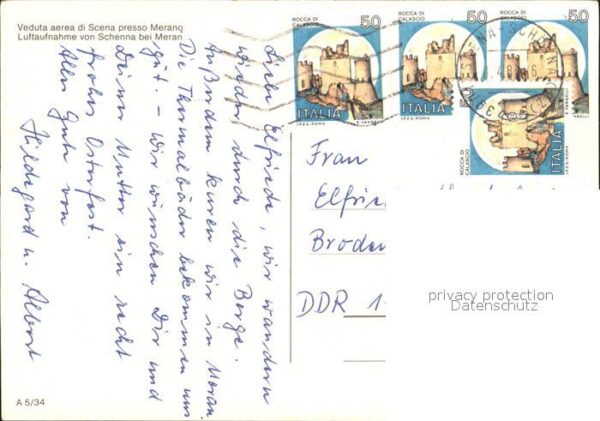 Veduta aerea di Scena presso Merano
Luftaufnahme von Schenna bei Meran
Liebe Elfriede, wir wandern
wieder durch die Berge.
Außerdem kuren wir in Meran.
Die Thermalbäder bekommen uns
gut. - Wir wünschen Dir und
Deiner Mutter ein recht
frohes Osterfest.
Alles Gute von
Hildegard u. Albert
A 5/34
ROCCA DI
CALASCIO
50
ITALIA
I.P.Z.S. ROMA
ROCCA DI
CALASCIO
50
ITALIA
I.P.Z.S. ROMA
ROCCA DI
CALASCIO
50
ROCCA DI
CALASCIO
50
ITALIA
Frau
Elfrie
Broden
DDR 1
privacy protection
Datenschutz